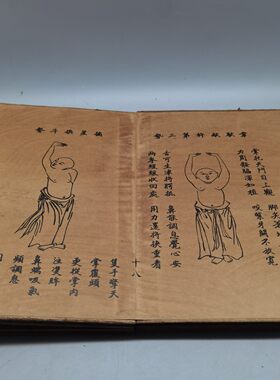 韋馱献杵第三勢
掌托天門目上觀
脚尖著地
力周骽脇渾如植
咬緊牙關不放寬
舌可生津將腭舐
鼻能調息覺心安
兩拳緩緩收回處
用力還將挾重看
十八
摘星换斗勢
隻手擎天
掌覆頭
更從掌内
注雙眸
鼻端吸氣
頻調息